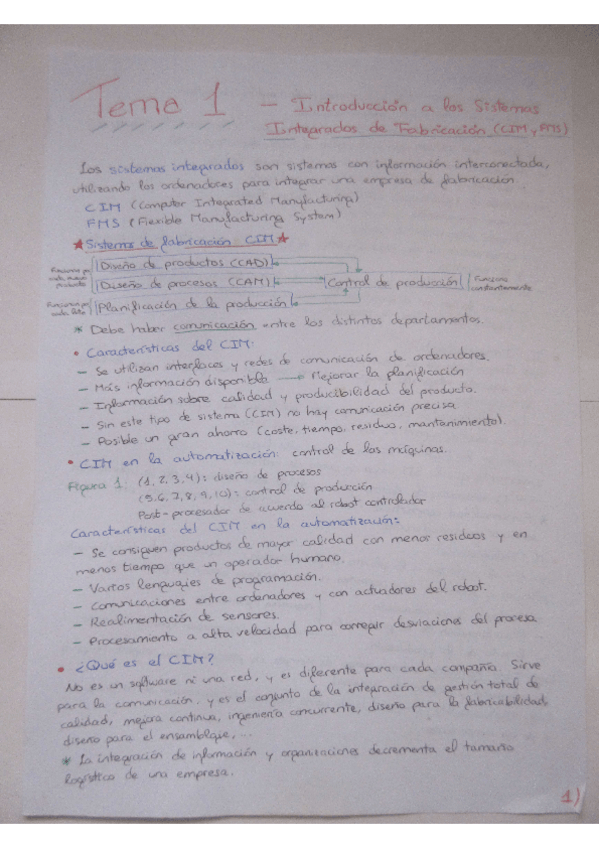 Tema 1 - Introducción a los Sistemas
Integrados de Fabricación (CIM y FMS)
Los sistemas integrados son sistemas con información interconectada,
utilizando los ordenadores para integrar una empresa de fabricación.
CIM (Computer Integrated Manufacturing)
FMS (Flexible Manufacturing System)
★Sistemas de fabricación CIM★
Diseño de productos (CAD)
Diseño de procesos (CAM)
Control de producción
Funciona constantemente
Planificación de la producción
* Debe haber comunicación entre los distintos departamentos.
• Características del CIM:
- Se utilizan interfaces y redes de comunicación de ordenadores.
- Más información disponible → Mejorar la planificación
- Información sobre calidad y producibilidad del producto.
- Sin este tipo de sistema (CIM) no hay comunicación precisa
- Posible un gran ahorro (coste, tiempo, residuo, mantenimiento).
• CIM en la automatización: control de las máquinas.
Figura 1: (1,2,3,4): diseño de procesos
(5,6,7,8,9,10): control de producción
Post-procesador de acuerdo al robot controlador
Características del CIM en la automatización:
- Se consiguen productos de mayor calidad con menos residuos y en
menos tiempo que un operador humano.
- Varios lenguajes de programación.
- Comunicaciones entre ordenadores y con actuadores del robot.
- Realimentación de sensores.
- Procesamiento a alta velocidad para corregir desviaciones del proceso
• ¿Qué es el CIM?
No es un software ni una red, y es diferente para cada compañía. Sirve
para la comunicación, y es el conjunto de la integración de gestión total de
calidad, mejora continua, ingeniería concurrente, diseño para la fabricabilidad,
diseño para el ensamblaje, ...
* La integración de información y organizaciones decrementa el tamaño
logístico de una empresa.
1)